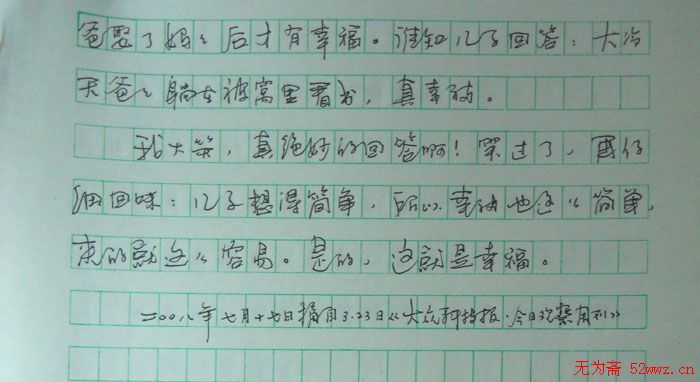 爸娶了妈妈后才有幸福。谁知儿子回答：大冷
天爸爸躺在被窝里看书，真幸福。
我大笑，真绝妙的回答啊！笑过了，再仔
细回味：儿子想得简单，所以幸福也这么简单，
来的就这么容易。是的，这就是幸福。
二00八年七月十七日摘自3.23日《大众科技报·今日观察周刊》
无为斋 52wwz.cn